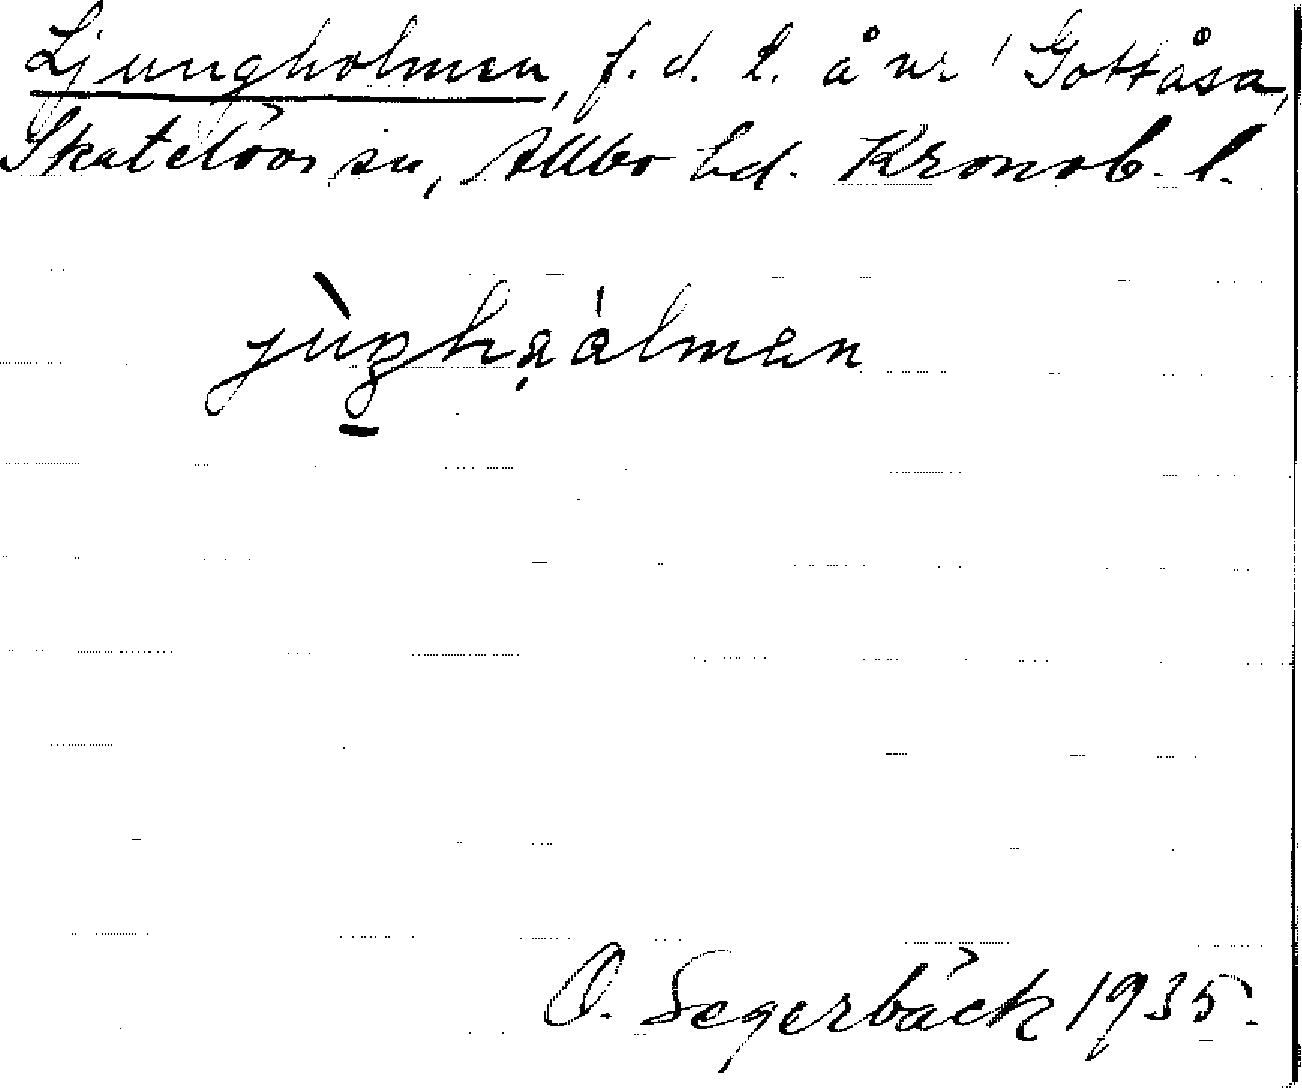 Ljungholmen, f. d. l. å nr 1 Gottåsa,
Skatelövs sn, Allbo hd. Kronob. l.
O. Segerbäck 1935.